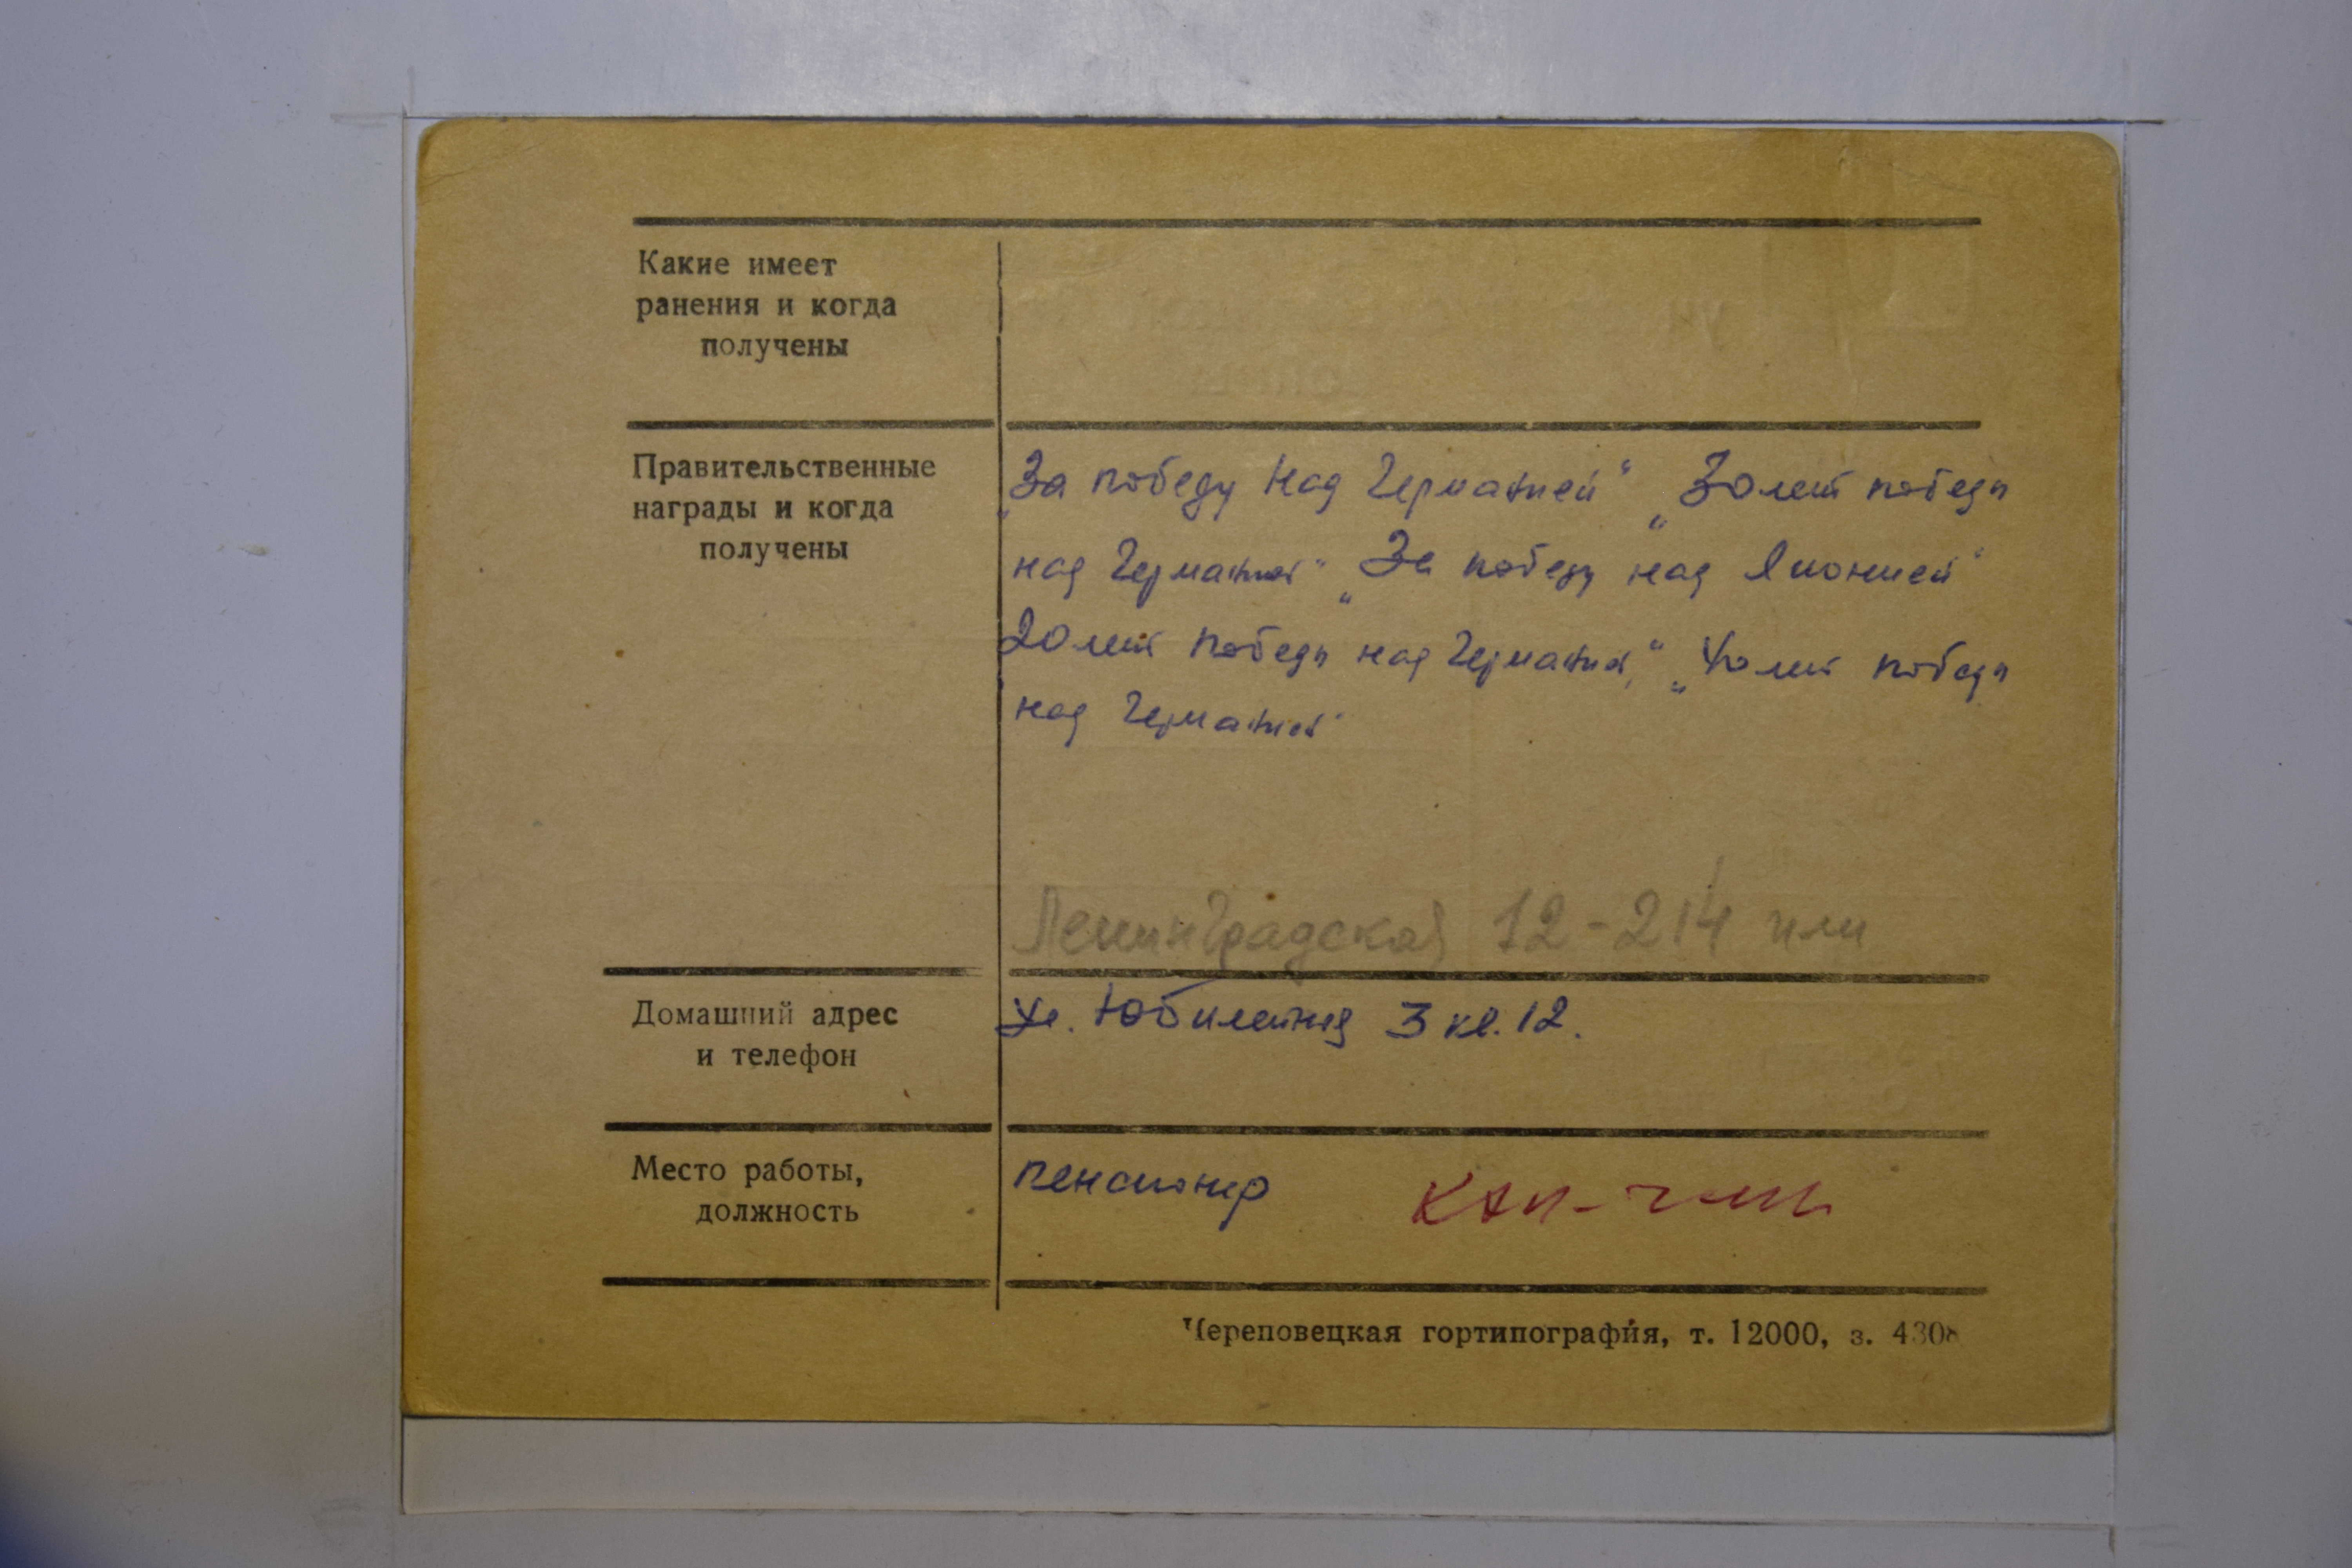 Какие имеет
ранения и когда
получены
Правительственные
награды и когда
получены
„За победу над Германией“ „30 лет победы
над Германией“ „За победу над Японией“
20 лет победы над Германией“, „40 лет победы
над Германией“
Ленинградская 12-214 или
Домашний адрес
и телефон
Ул. Юбилейная 3 кв. 12.
Место работы,
должность
пенсионер
Череповецкая гортипография, т. 12000, з. 4308